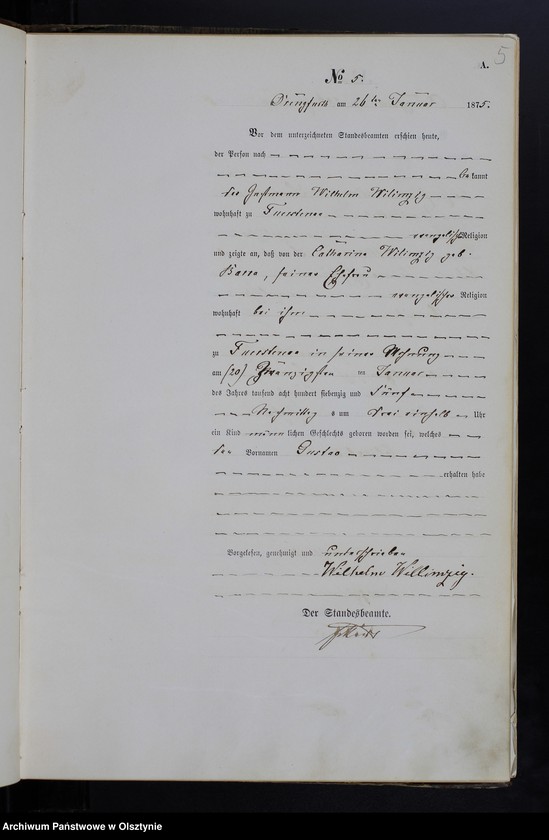 5
A.
No 5.
am 26ten Januar 1875.
Vor dem unterzeichneten Standesbeamten erschien heute,
der Person nach
bekannt
der Wilhelm Willimzig
wohnhaft zu
evangelischer Religion
und zeigte an, daß von der Catharine Willimzig geb.
seiner Ehefrau
evangelischer Religion
wohnhaft bei ihm
zu in seiner Wohnung
am (20) Zwanzigsten ten Januar
des Jahres tausend acht hundert siebenzig und fünf
Nachmittags um drei einhalb Uhr
ein Kind männlichen Geschlechts geboren worden sei, welches
den Vornamen Gustav
erhalten habe
Vorgelesen, genehmigt und unterschrieben
Wilhelm Willimzig.
Der Standesbeamte.
Archiwum Państwowe w Olsztynie